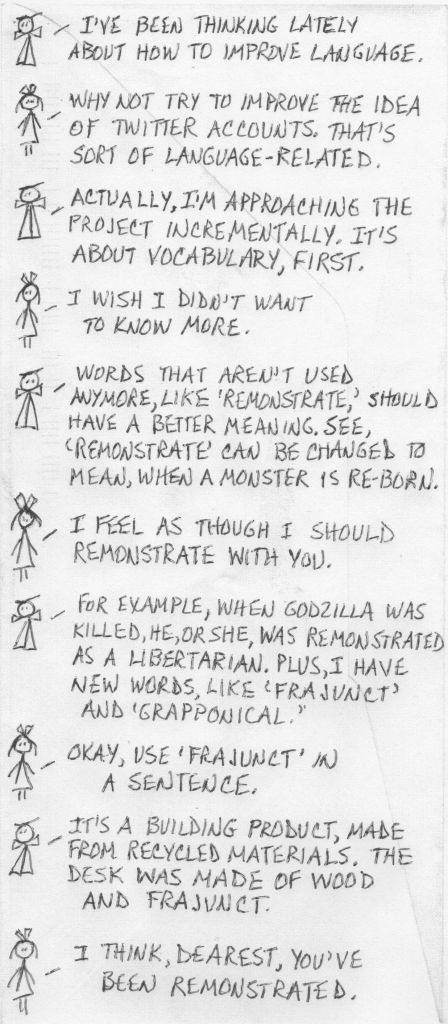 I'VE BEEN THINKING LATELY
ABOUT HOW TO IMPROVE LANGUAGE.
WHY NOT TRY TO IMPROVE THE IDEA
OF TWITTER ACCOUNTS. THAT'S
SORT OF LANGUAGE-RELATED.
ACTUALLY, I'M APPROACHING THE
PROJECT INCREMENTALLY. IT'S
ABOUT VOCABULARY, FIRST.
I WISH I DIDN'T WANT
TO KNOW MORE.
WORDS THAT AREN'T USED
ANYMORE, LIKE 'REMONSTRATE,' SHOULD
HAVE A BETTER MEANING. SEE,
'REMONSTRATE' CAN BE CHANGED TO
MEAN, WHEN A MONSTER IS RE-BORN.
I FEEL AS THOUGH I SHOULD
REMONSTRATE WITH YOU.
FOR EXAMPLE, WHEN GODZILLA WAS
KILLED, HE, OR SHE, WAS REMONSTRATED
AS A LIBERTARIAN. PLUS, I HAVE
NEW WORDS, LIKE 'FRAJUNCT'
AND 'GRAPPONICAL.'
OKAY, USE 'FRAJUNCT' IN
A SENTENCE.
IT'S A BUILDING PRODUCT, MADE
FROM RECYCLED MATERIALS. THE
DESK WAS MADE OF WOOD
AND FRAJUNCT.
I THINK, DEAREST, YOU'VE
BEEN REMONSTRATED.